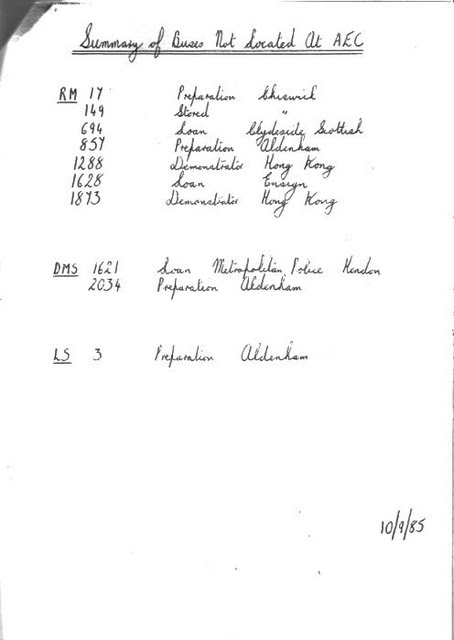 Summary of Buses Not Located At AEC
RM 17 Preparation Chiswick
149 Stored "
694 Loan Clydeside Scottish
857 Preparation Aldenham
1288 Demonstrator Hong Kong
1628 Loan Ensign
1873 Demonstrator Hong Kong
DMS 1621 Loan Metropolitan Police Hendon
2034 Preparation Aldenham
LS 3 Preparation Aldenham
10/9/85